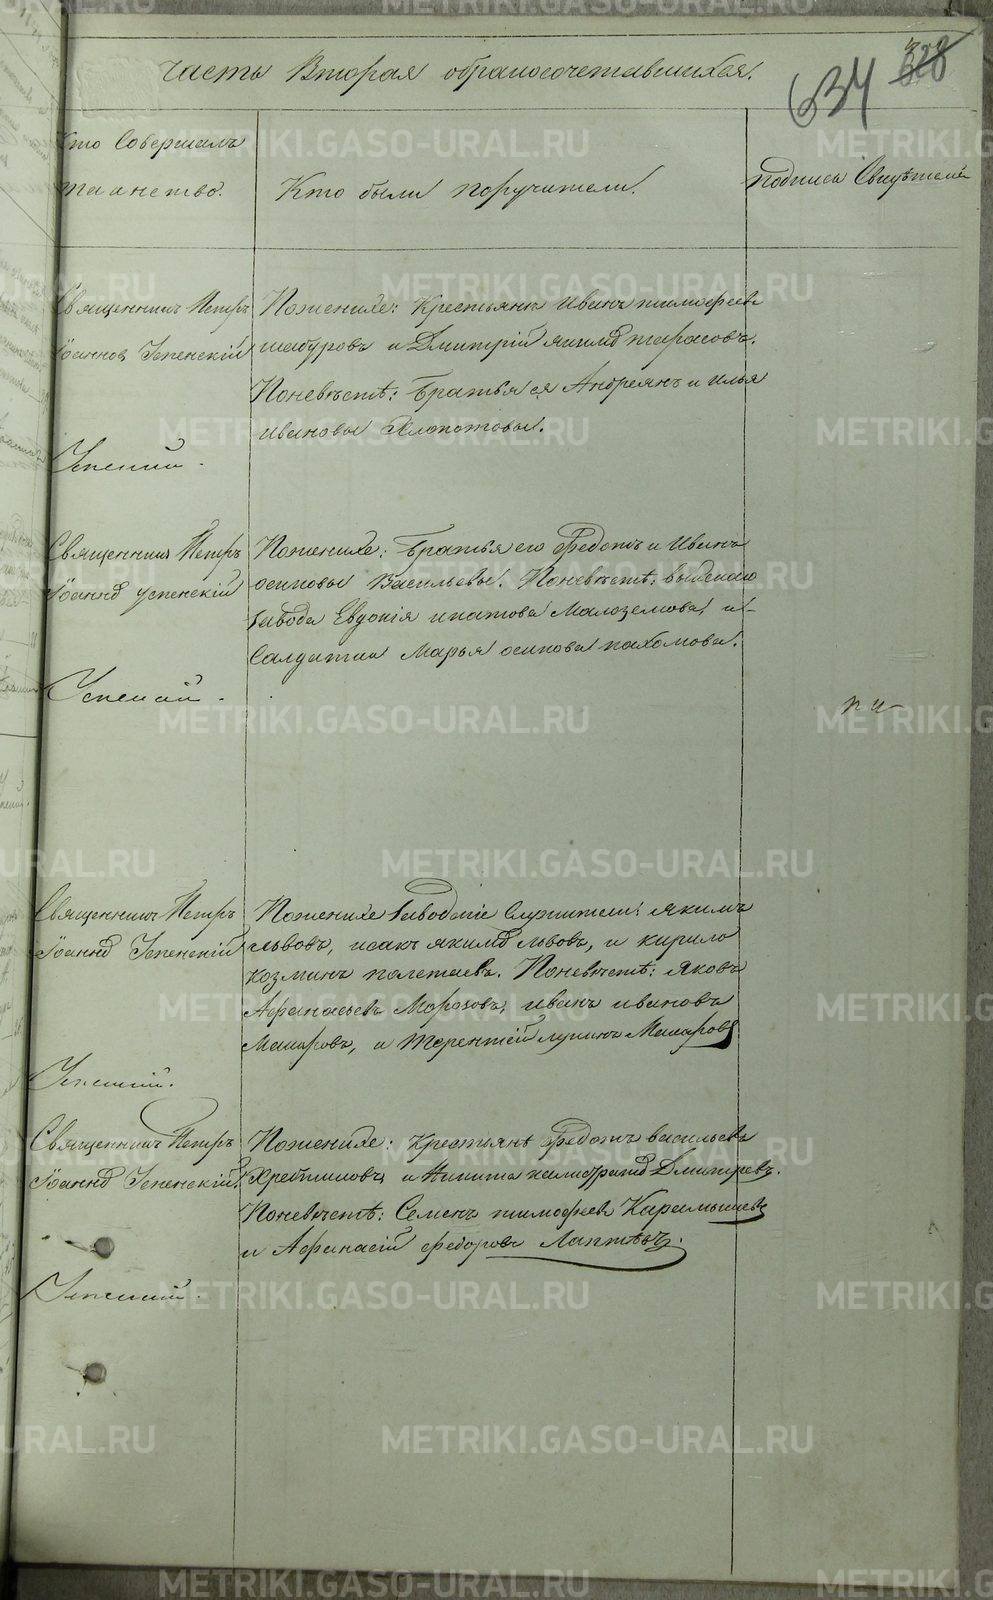 634
Часть Вторая обракосочетавшихся.
Кто Совершалъ
таинство.
Кто были поручители.
подпись Свидѣтелей
Священникъ Петръ
Іоанновъ Успенскій
Успенский.
Поженихе: Крестьяне Иванъ тимофеев
шабуровъ и Дмитрій якимов тарасовъ.
Поневѣсте: Братья ея Андреянъ и илья
ивановы Хлопотовы.
Священникъ Петръ
Іоанновъ успенскій
Успенский.
Поженихе: Братья его Федотъ и Иванъ
осиповы Васильевы. Поневѣсте:
завода Евдокія ипатова Малоземова и
Салдатка Марья осипова пахомова.
Священникъ Петръ
Іоанновъ Успенскій
Успенский.
Поженихе заводские Служители: якимъ
львовъ, исакъ якимов львовъ, и кирило
козминъ полетаевъ. Поневѣсте: яковъ
Афанасьевъ Морозовъ, иванъ ивановъ
Макаровъ, и терентей лукинъ Макаровъ
Священникъ Петръ
Іоанновъ Успенскій
Успенский.
Поженихе: крестьяне Федотъ васильевъ
и Никита Дмитревъ.
Поневѣсте: Семенъ тимофеевъ Карамышевъ
и Афанасій федоровъ Лаптевъ.
METRIKI.GASO-URAL.RU